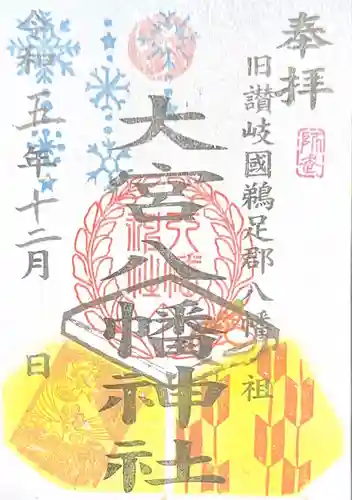 奉拝
旧讃岐國鵜足郡八幡
祖
大宮八幡神社
令和五年十二月 日